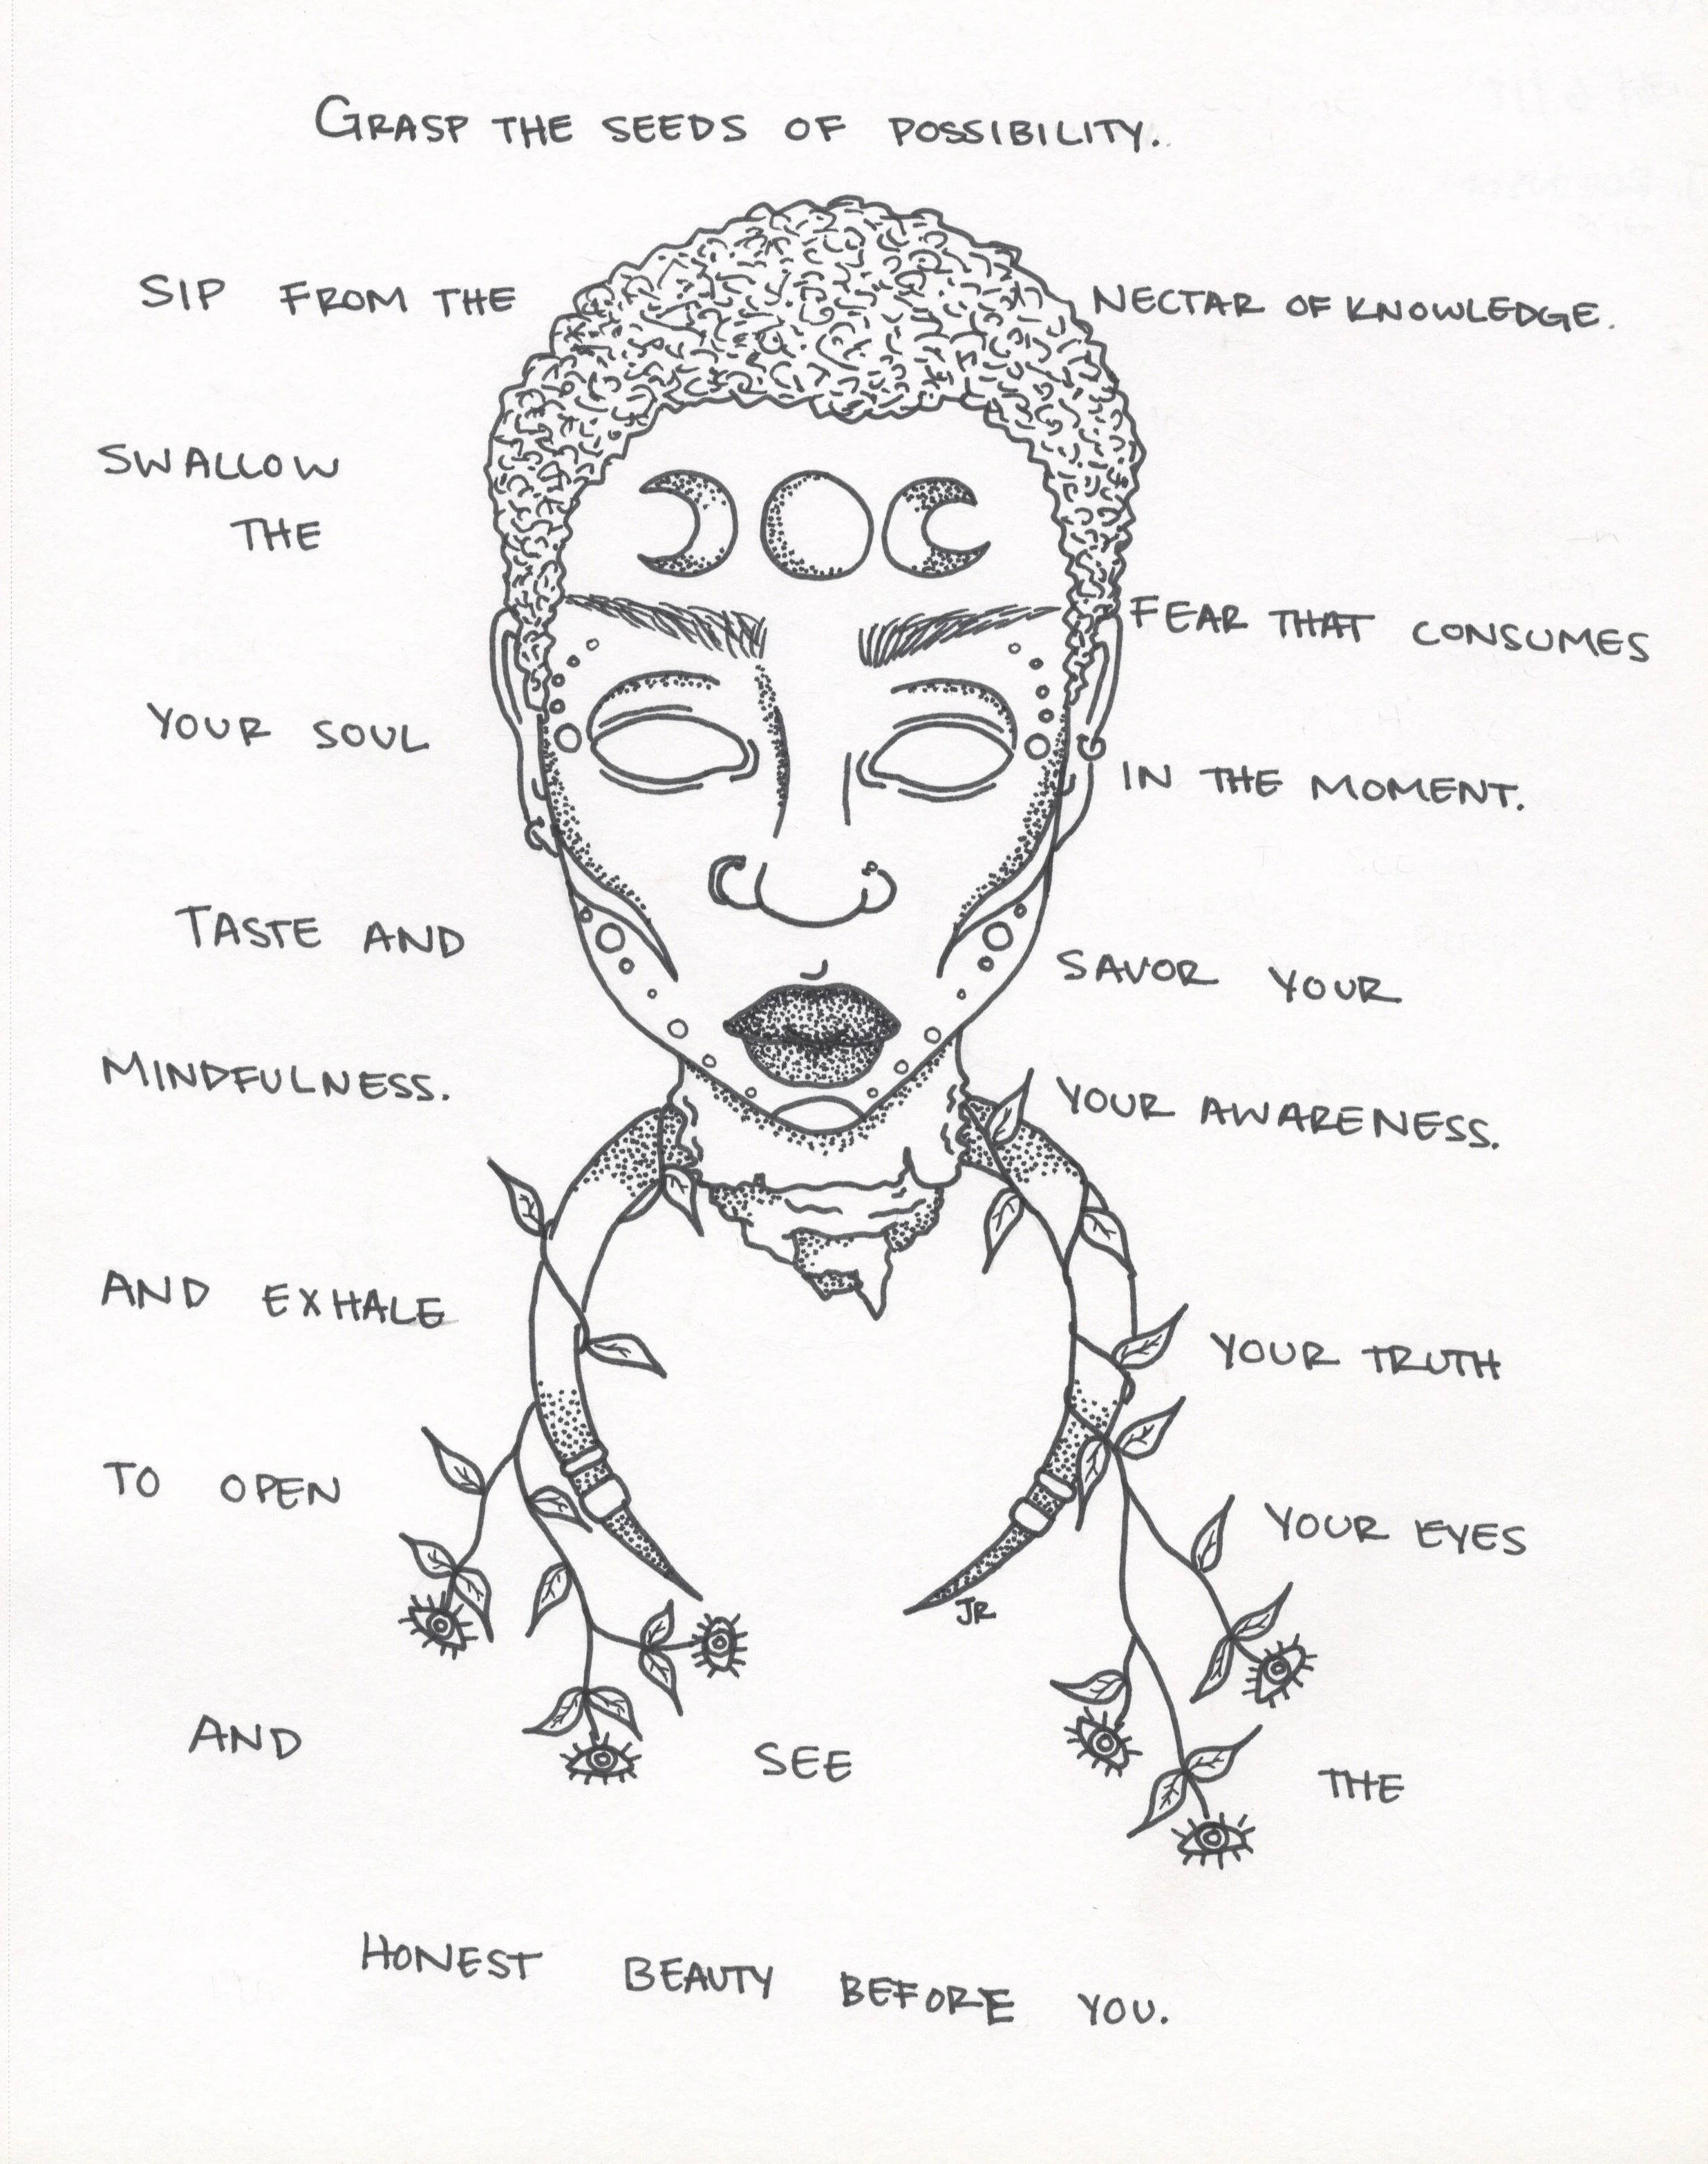 GRASP THE SEEDS OF POSSIBILITY.
SIP FROM THE NECTAR OF KNOWLEDGE.
SWALLOW
THE
FEAR THAT CONSUMES
YOUR SOUL
IN THE MOMENT.
TASTE AND
SAVOR YOUR
MINDFULNESS.
YOUR AWARENESS.
AND EXHALE
YOUR TRUTH
TO OPEN
YOUR EYES
JR
AND SEE THE
HONEST BEAUTY BEFORE YOU.